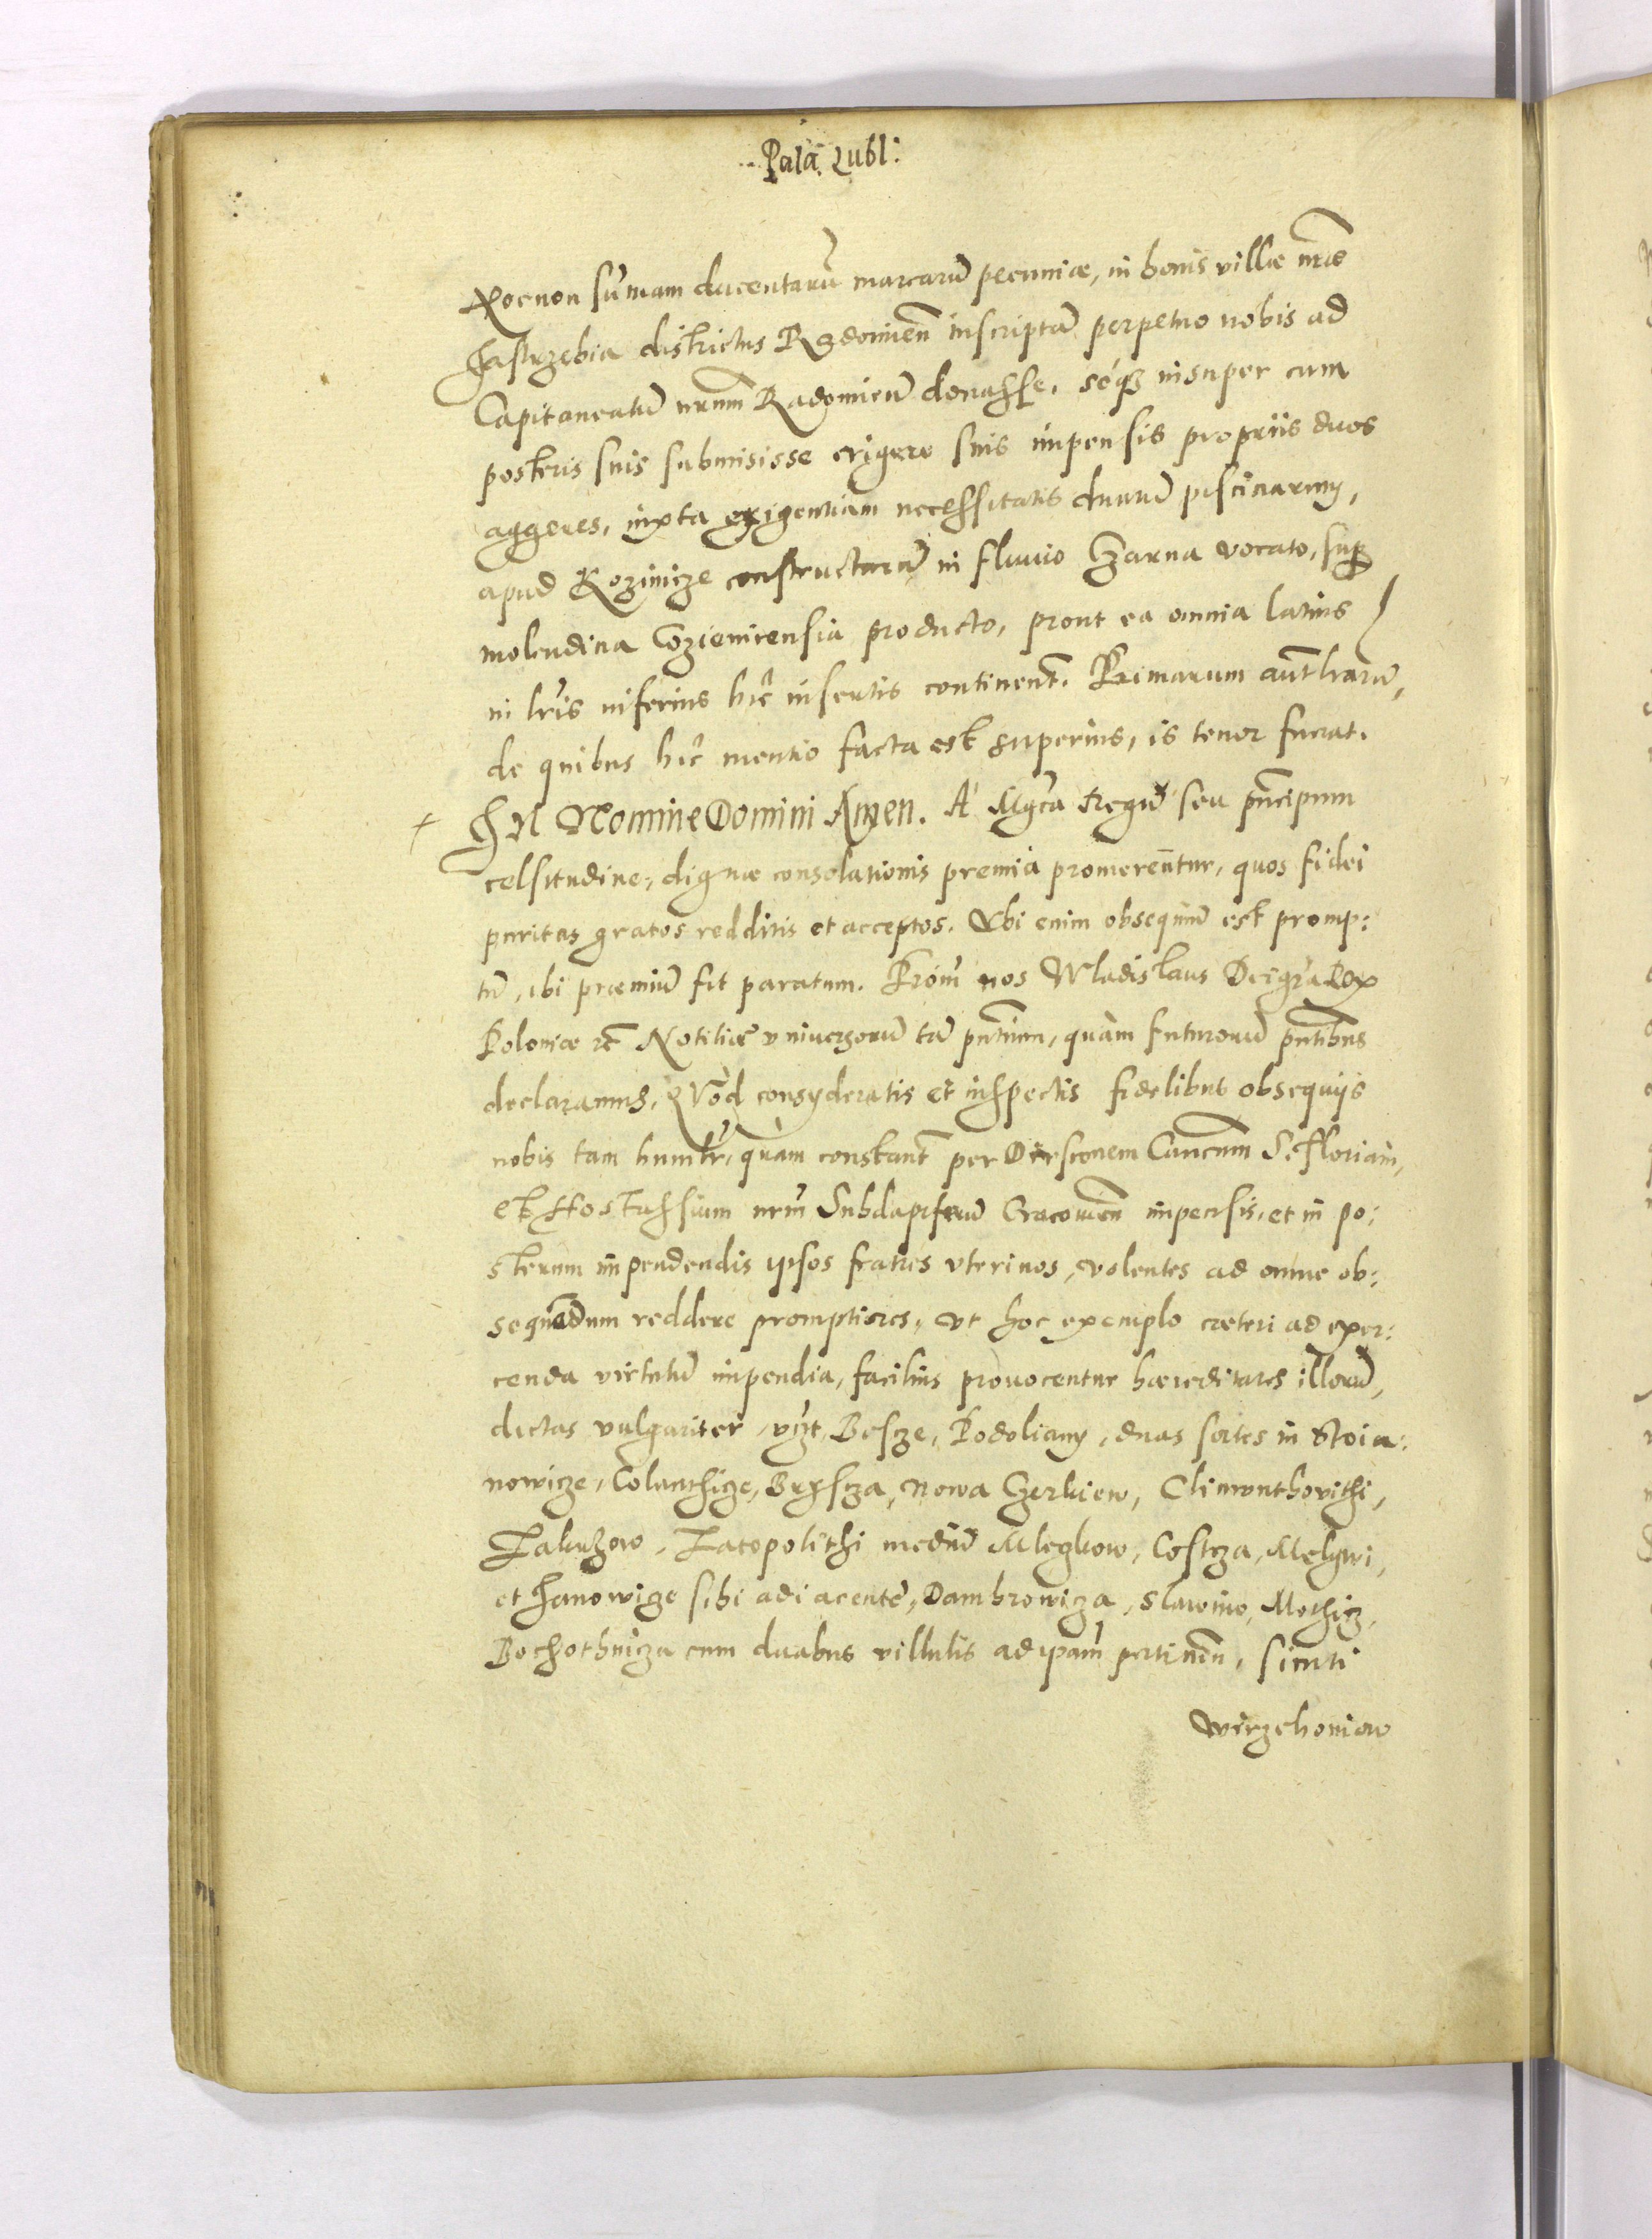 Pala: Lubl:
Necnon sumam ducentarũ marcarũ pecuniæ, in bonis villæ nrãe
Jastrzebia districtus Radomien̄ inscriptã perpetuo nobis ad
Capitaneatũ nrũm Radomieñ donasse. séq3 insuper cum
posteris suis submisisse erigere suis impensis propriis duos
aggeres, iuxta exigentiam necessitatis duarũ piscinarum,
apud Kozinicze constructarũ in fluuio Czarna vocato, sup
molendina Cozienicensia producto, prout ea omnia latius
in lr̃is inferius hic̃ insertis continent̃. Primarum aut̃ lrarũ,
de quibus hic̃ mentio facta est superius, is tenor fuerat.
IN Nomine Domini Amen. A' Mgc̃a Regũ seu pñcipum
celsitudine, dignæ consolationis premia promerent̃ur, quos fidei
puritas gratos reddit is et acceptos. Vbi enim obsequiũ est promp:
tũ, ibi præmiũ fit paratum. Proiñ nos Wladislaus Dei gr̃a Rex
Poloniæ etc̃ Notitiæ vniuersorũ tã pñtium, quàm futurorũ pñtibus
declaramus, Quòd consyderatis et inspectis fidelibus obsequijs
nobis tam humilr̃, quàm constant̃ per Dirsconem Cancum S. Floriani,
et Hostassium nrm̃ Subdapiferũ Cracouien̄ impensis, et in po:
sterum impendendis ipsos fratres vterinos, volentes ad omne ob:
sequẽdum reddere promptiores, vt hoc exemplo cæteri ad exer:
cenda virtutũ impendia, facilius prouocentur hæreditates illorũ,
dictas vulgariter, vȳt, Besze, Podoliany, duas sortes in Stoia:
nowicze, Colaczicze, Brzescza, Nowa Czerkiew, Climonthovithi,
Lakuzow, Latopolithi mediũ Mlegkow, Costcza, Melgwi,
et Janowicze sibi adiacentẽ, Dambrowicza, Slawino, Mothicz,
Bochothnicza cum duabus villulis ad ipam̃ pertinen̄, sicuti
Wirzchoniow